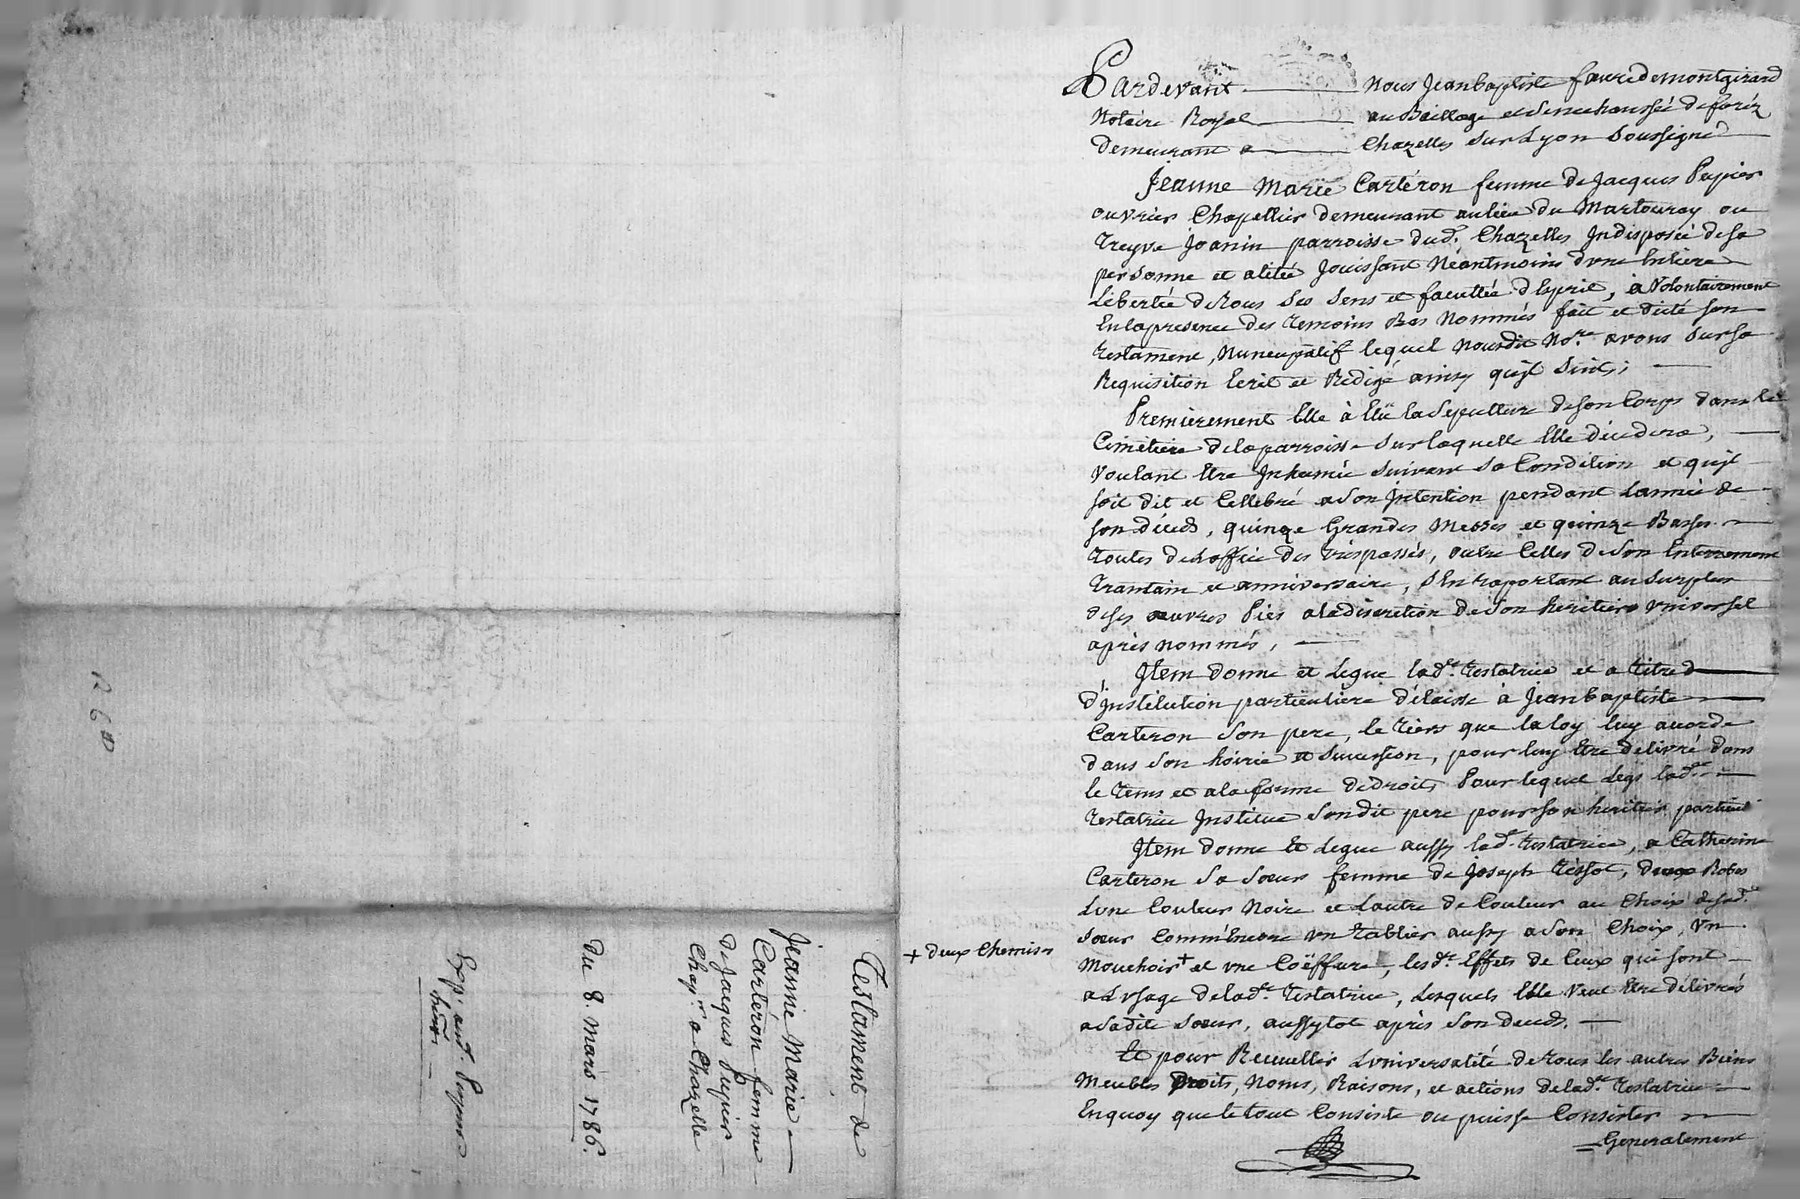 Pardevant nous Jean baptiste faure demontgirard
Notaire Royal au Bailliage et Senechaussée de foréz
demeurant a Chazelles sur Lyon soussigné
Jeanne Marie Cartéron femme de Jacques Pupier
ouvrier Chapellier demeurant au lieu du Martouray ou
Treyve Joanin parroisse dud.t Chazelles Indisposée de sa
personne et alitée Jouissant Néantmoins d'une Entiere
Liberté de tous ses sens et facultée d'Esprit, à Volontairement
En la presence des temoins Bas Nommés fait et dicté son
testament, nuncupatif lequel nousdit No.re avons sur sa
Requisition Ecrit et Rédigé ainsy qu'jl suit;
Premierement Elle à Elü la Sepulture de son Corps dans le
Cimétiere de la parroisse sur laquelle Elle décedera,
voulant Etre Jnhumée suivant sa Condition et qu'jl
soit dit et Cellebré a son Jntention pendant l'année de
son décéds, quinze Grandes Messes et quinze Basses
toutes de l'office des trépassés, outre Celles de son Enterrement
trantain et anniversaire, s'En raportant au surplus
de ses œuvres Pies a la discretion de son heritier universel
après nommés,
Jtem donne et Legue lad.te testatrice et a titre d
d'Jnstitution particuliere délaisse à Jean baptiste
Carteron son pere, le tiers que la loy luy acorde
dans son hóirie et succession, pour luy Etre delivré dans
le tems et a la forme de droit, Pour lequel Legs lad.te
testatrice Jnstitue sondit pere pour son heritier particul
Jtem donne Et Legue aussy lad.te testatrice, a Catherine
Carteron sa sœur femme de Joseph téssot, deux Robes
L'une Couleur Noire et L'autre de Couleur au Choix de sad.te
sœur Comm'Encore un tablier aussy a son Choix, un
+ deux Chemises
Mouchoir + et une Coëffure, lesd.ts Effets de Ceux qui sont
a L'usage de lad.te testatrice, Lesquels Elle Veut Etre délivrés
a sadite sœur, aussytot après son deceds.
Et pour Recueller L'universalité de tous les autres Biens
Meubles Droits, Noms, Raisons, et actions de lad.te testatrice
En quoy que le tout Consiste ou puisse Consister
Generalement
Testament de
Jeanne Marie
Cartéron femme
de Jacques Pupier
Chap.r a Chazelle
Du 8 Mars 1786.